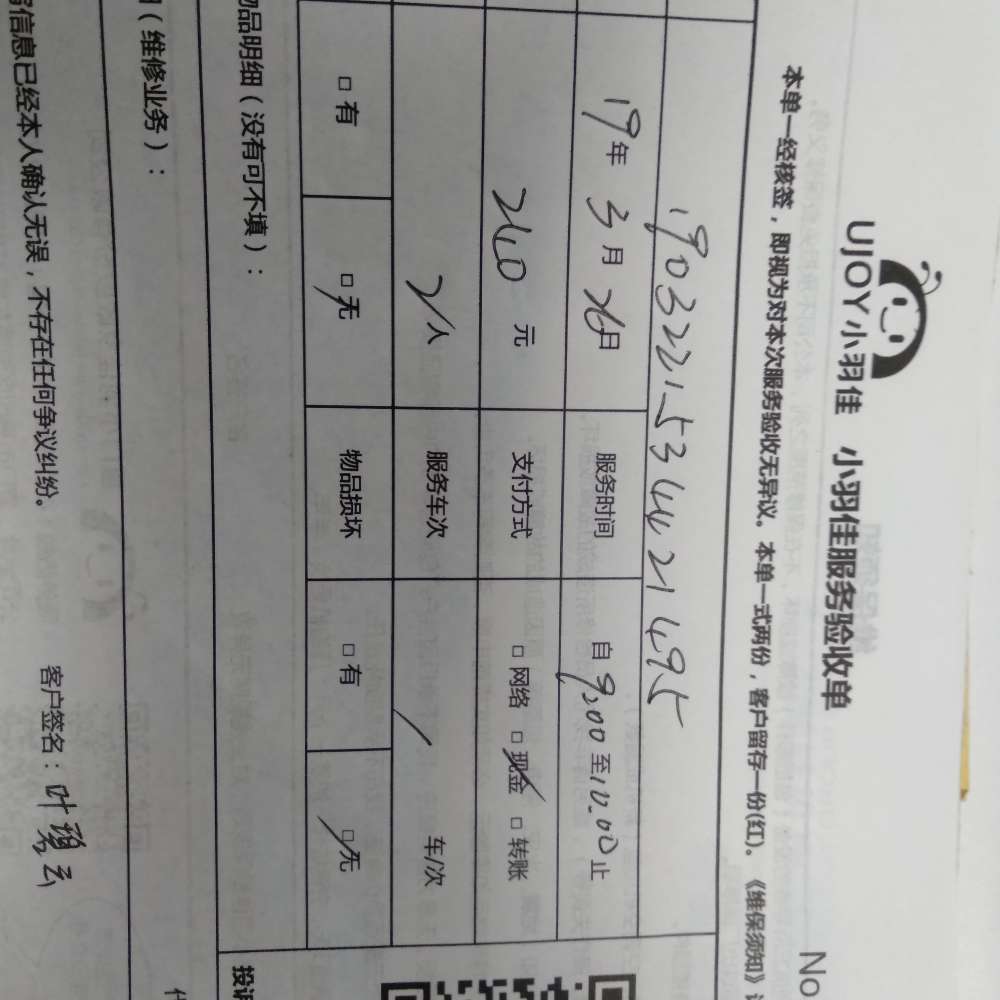 UJOY小羽佳 小羽佳服务验收单
No
本单一经核签，即视为对本次服务验收无异议。本单一式两份，客户留存一份(红)。《维保须知》
19年3月26日 服务时间 自9:00至10:00止
元 支付方式 □网络 □现金 □转账
2人 服务车次 / 车/次
□有 □无 物品损坏 □有 □无
物品明细（没有可不填）：
投诉
（维修业务）：
信息已经本人确认无误，不存在任何争议纠纷。 客户签名：叶碧云